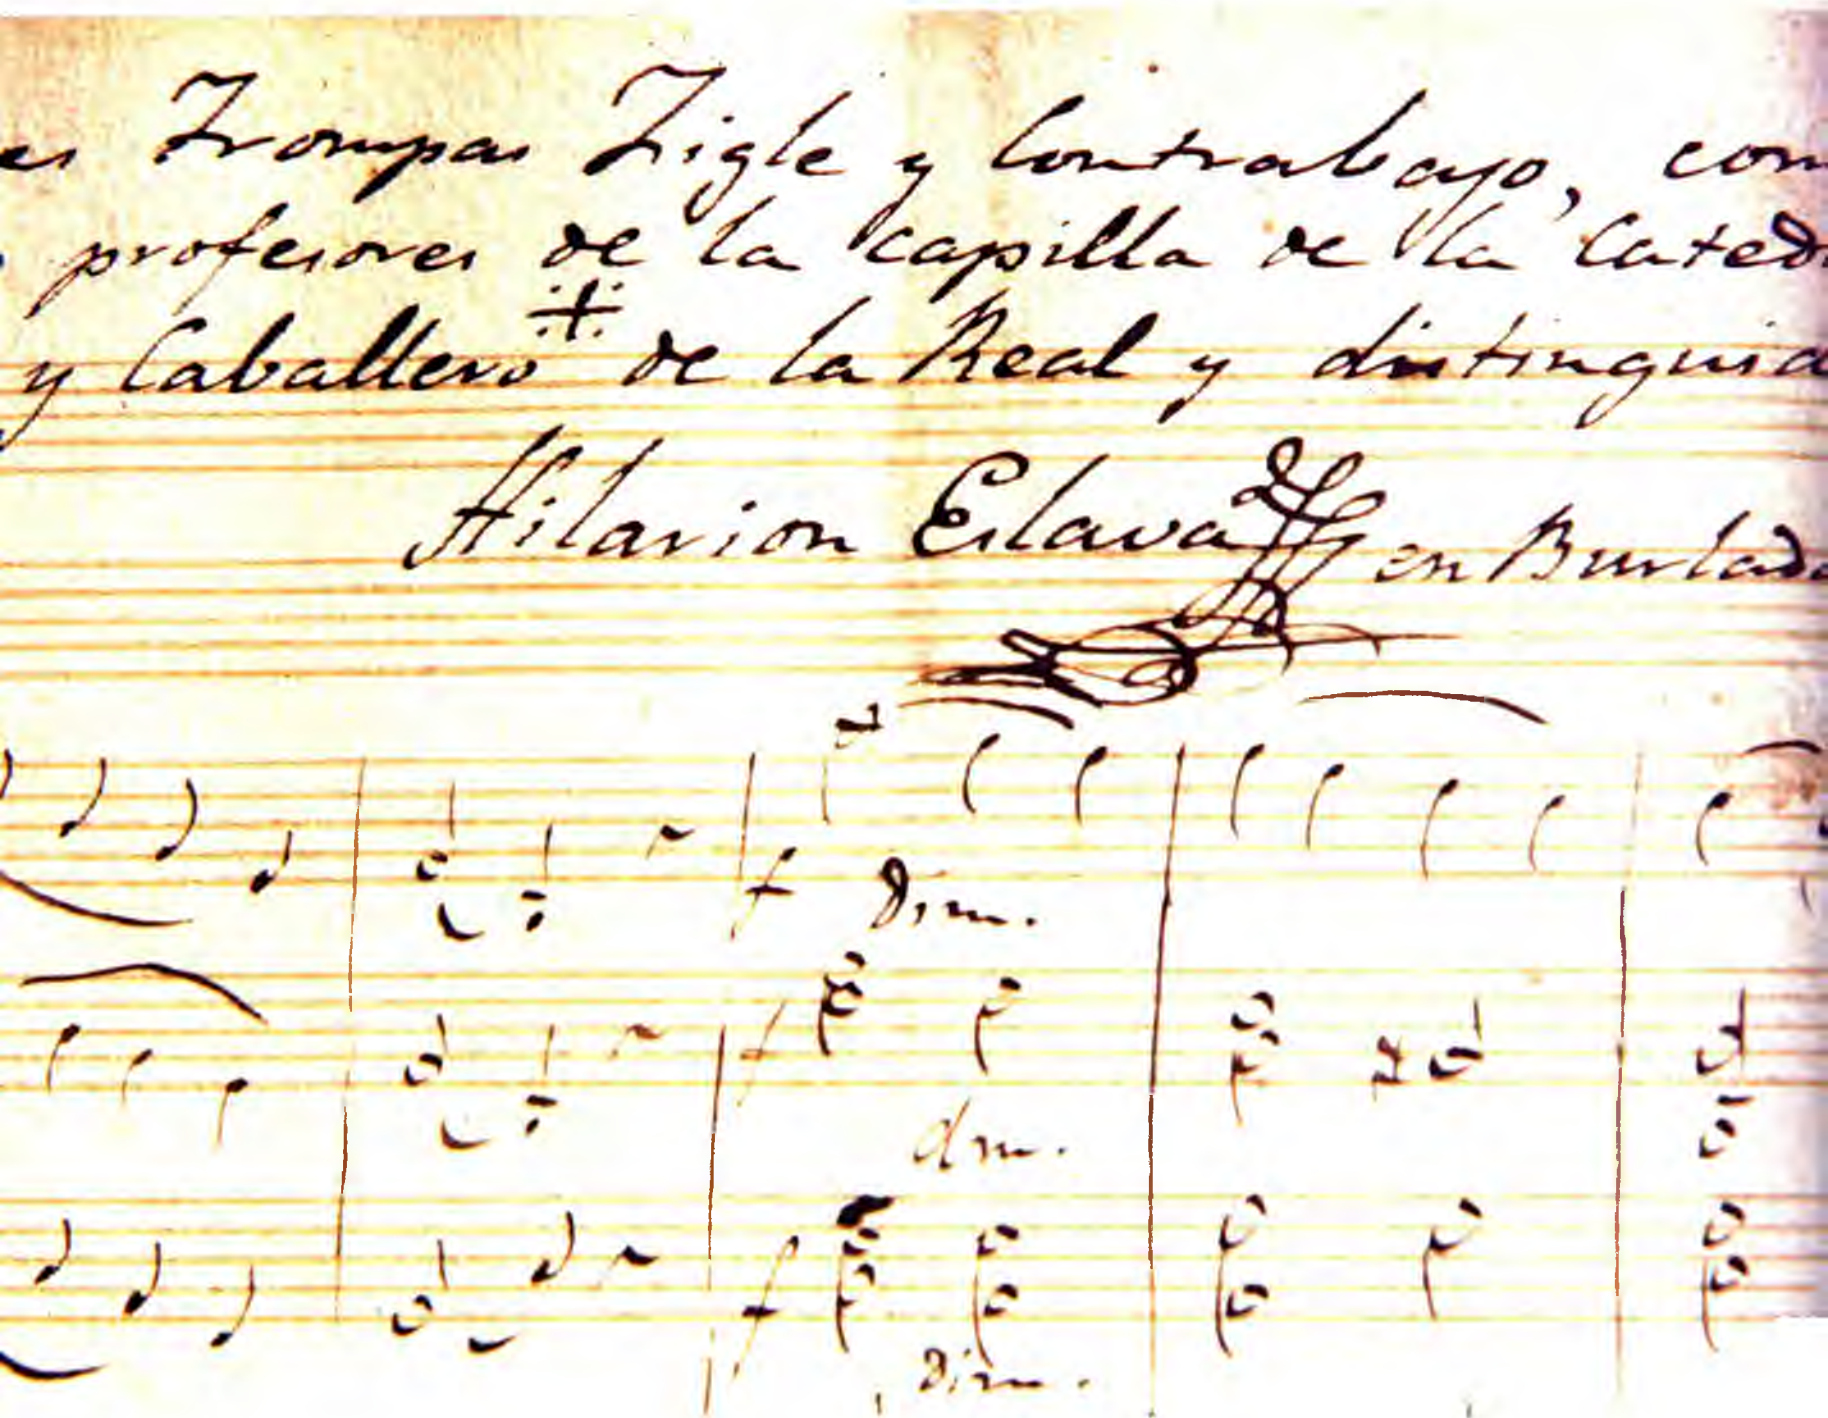 es Trompas Figle y Contrabajo, com
profesores de la capilla de la Catedr
y Caballero de la Real y distinguid
Hilarion Eslava en Burlada
f Dim.
f dim.
f Dim.